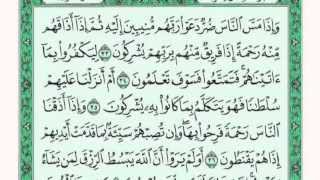 وَإِذَا مَسَّ ٱلنَّاسَ ضُرٌّ دَعَوْا۟ رَبَّهُم مُّنِيبِينَ إِلَيْهِ ثُمَّ إِذَآ أَذَاقَهُم
مِّنْهُ رَحْمَةً إِذَا فَرِيقٌ مِّنْهُم بِرَبِّهِمْ يُشْرِكُونَ ٣٣ لِيَكْفُرُوا۟ بِمَآ
ءَاتَيْنَٰهُمْ فَتَمَتَّعُوا۟ فَسَوْفَ تَعْلَمُونَ ٣٤ أَمْ أَنزَلْنَا عَلَيْهِمْ
سُلْطَٰنًا فَهُوَ يَتَكَلَّمُ بِمَا كَانُوا۟ بِهِۦ يُشْرِكُونَ ٣٥ وَإِذَآ أَذَقْنَا
ٱلنَّاسَ رَحْمَةً فَرِحُوا۟ بِهَا وَإِن تُصِبْهُمْ سَيِّئَةٌۢ بِمَا قَدَّمَتْ أَيْدِيهِمْ
إِذَا هُمْ يَقْنَطُونَ ٣٦ أَوَلَمْ يَرَوْا۟ أَنَّ ٱللَّهَ يَبْسُطُ ٱلرِّزْقَ لِمَن يَشَآءُ